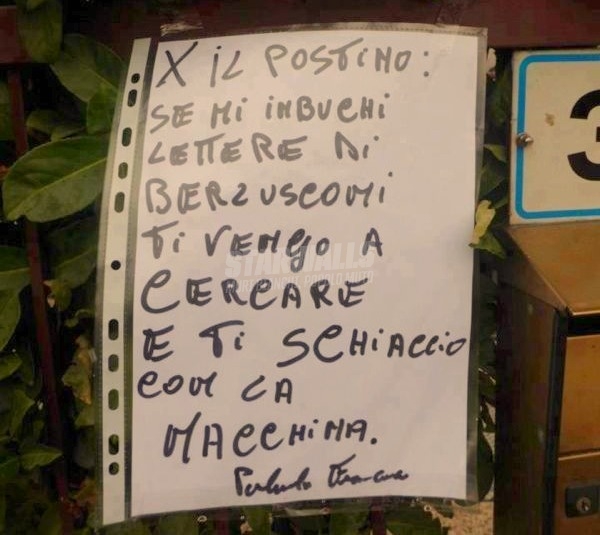 X IL POSTINO:
SE MI INBUCHI
LETTERE DI
BERLUSCONI
TI VENGO A
CERCARE
E TI SCHIACCIO
CON LA
MACCHINA.
3